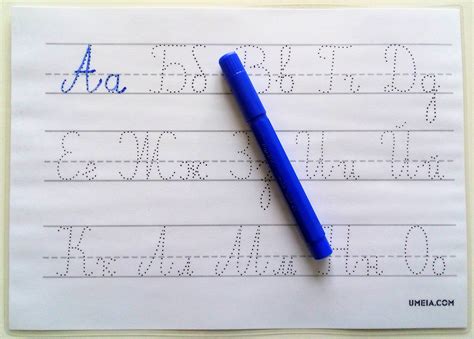 Аа Бб Вв Гг Дд
Ее Жж Зз Ии Йй
Кк Лл Мм Нн Оо
UMEIA.COM